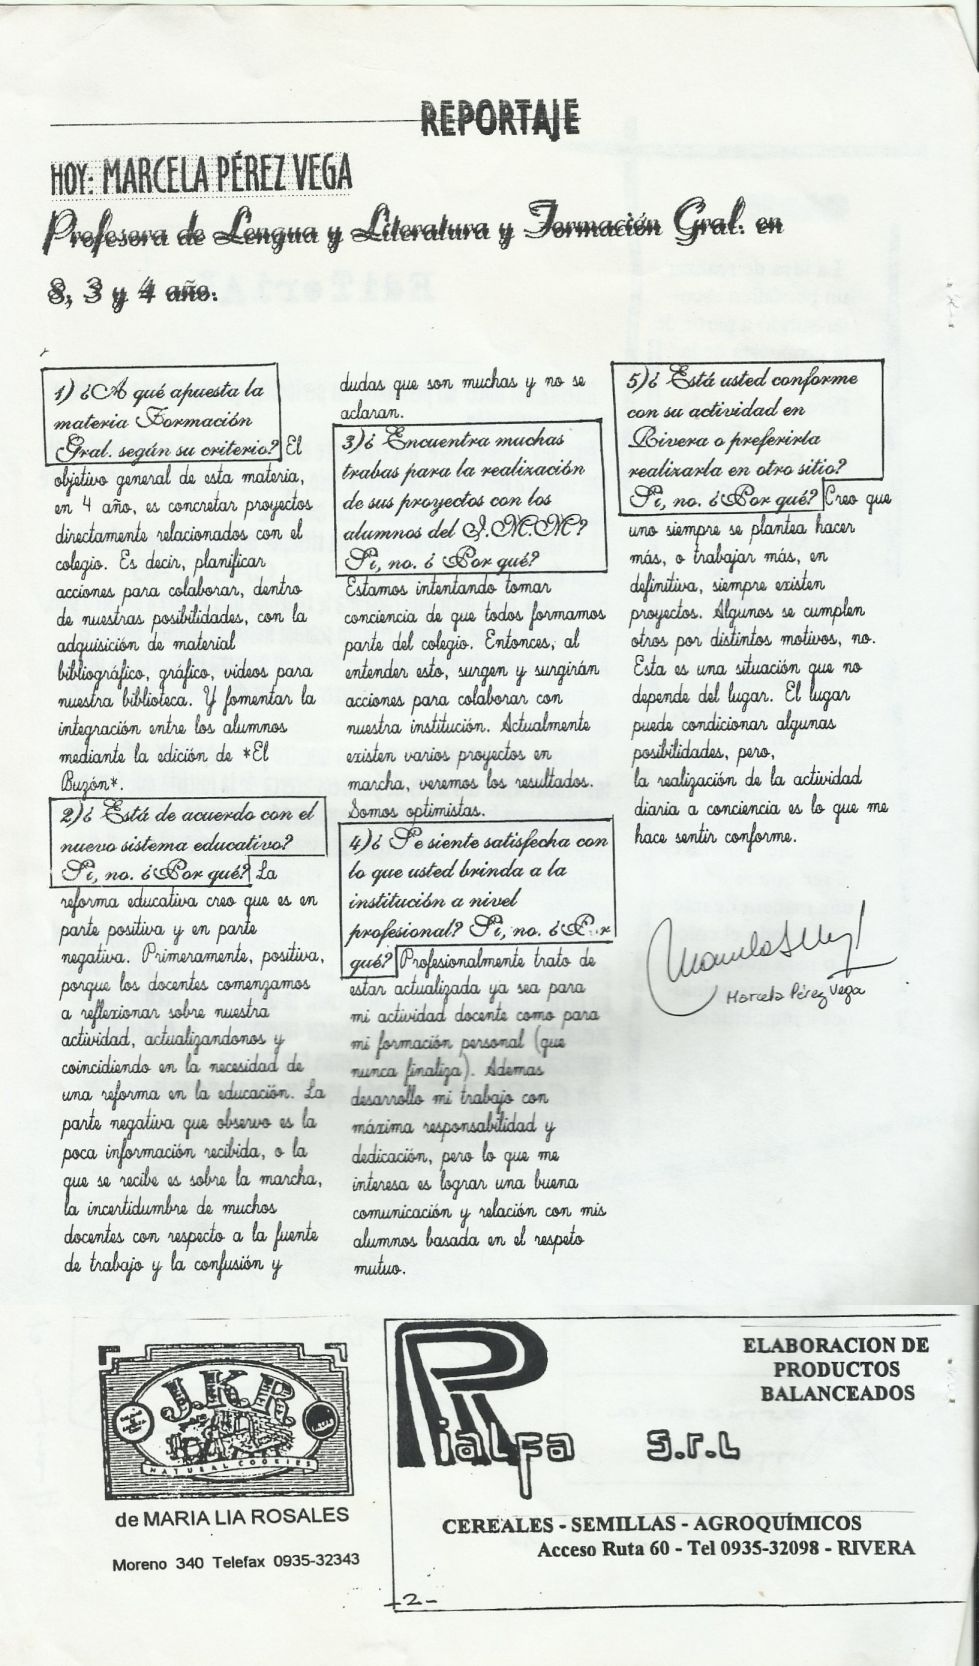 REPORTAJE
HOY: MARCELA PÉREZ VEGA
Profesora de Lengua y Literatura y Formación Gral. en
8, 3 y 4 año.
1) ¿A qué apuesta la
materia Formación
Gral. según su criterio? El
objetivo general de esta materia,
en 4 año, es concretar proyectos
directamente relacionados con el
colegio. Es decir, planificar
acciones para colaborar, dentro
de nuestras posibilidades, con la
adquisición de material
bibliográfico, gráfico, videos para
nuestra biblioteca. Y fomentar la
integración entre los alumnos
mediante la edición de *El
Buzón*.
2)¿ Está de acuerdo con el
nuevo sistema educativo?
Si, no. ¿Por qué? La
reforma educativa creo que es en
parte positiva y en parte
negativa. Primeramente, positiva,
porque los docentes comenzamos
a reflexionar sobre nuestra
actividad, actualizandonos y
coincidiendo en la necesidad de
una reforma en la educación. La
parte negativa que observo es la
poca información recibida, o la
que se recibe es sobre la marcha,
la incertidumbre de muchos
docentes con respecto a la fuente
de trabajo y la confusión y
dudas que son muchas y no se
aclaran.
3)¿ Encuentra muchas
trabas para la realización
de sus proyectos con los
alumnos del J.M.M?
Si, no. ¿ Por qué?
Estamos intentando tomar
conciencia de que todos formamos
parte del colegio. Entonces, al
entender esto, surgen y surgirán
acciones para colaborar con
nuestra institución. Actualmente
existen varios proyectos en
marcha, veremos los resultados.
Somos optimistas.
4)¿ Se siente satisfecha con
lo que usted brinda a la
institución a nivel
profesional? Si, no. ¿Por
qué? Profesionalmente trato de
estar actualizada ya sea para
mi actividad docente como para
mi formación personal (que
nunca finaliza). Ademas
desarrollo mi trabajo con
máxima responsabilidad y
dedicación, pero lo que me
interesa es lograr una buena
comunicación y relación con mis
alumnos basada en el respeto
mutuo.
5)¿ Está usted conforme
con su actividad en
Rivera o preferiría
realizarla en otro sitio?
Si, no. ¿Por qué? Creo que
uno siempre se plantea hacer
más, o trabajar más, en
definitiva, siempre existen
proyectos. Algunos se cumplen
otros por distintos motivos, no.
Esta es una situación que no
depende del lugar. El lugar
puede condicionar algunas
posibilidades, pero,
la realización de la actividad
diaria a conciencia es lo que me
hace sentir conforme.
Marcela Pérez Vega
J.K.R.
NATURAL COOKIES
de MARIA LIA ROSALES
Moreno 340 Telefax 0935-32343
Rialfa s.r.l
ELABORACION DE
PRODUCTOS
BALANCEADOS
CEREALES - SEMILLAS - AGROQUÍMICOS
Acceso Ruta 60 - Tel 0935-32098 - RIVERA
-2-